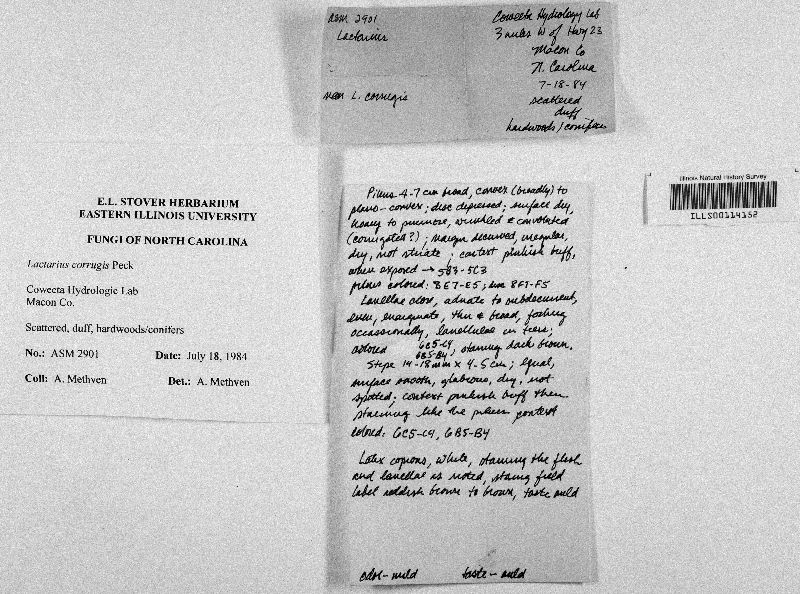 ASM 2901
Lactarius
near L. corrugis
Coweeta Hydrology Lab
3 miles W of Hwy 23
Macon Co
N. Carolina
7-18-84
scattered
duff
hardwoods/conifers
E.L. STOVER HERBARIUM
EASTERN ILLINOIS UNIVERSITY
FUNGI OF NORTH CAROLINA
Lactarius corrugis Peck
Coweeta Hydrologic Lab
Macon Co.
Scattered, duff, hardwoods/conifers
No.: ASM 2901 Date: July 18, 1984
Coll: A. Methven Det.: A. Methven
Pileus 4-7 cm broad, convex (broadly) to
plano-convex; disc depressed; surface dry,
hoary to pruinose, wrinkled & convoluted
(corrugated?); margin decurved, irregular,
dry, not striate; context pinkish buff,
where exposed → 5B3-5C3
pileus colored: 8E7-E5; near 8F7-F5
Lamellae close, adnate to subdecurrent,
even, emarginate, thin & broad, forking
occassionally, lamellulae in tiers;
colored 6C5-C4, 6B5-B4, staining dark brown.
Stipe 14-18mm x 4-5cm; equal,
surface smooth, glabrous, dry, not
spotted; context pinkish buff then
staining like the pileus context
colored: 6C5-C4, 6B5-B4
Latex copious, white, staining the flesh
and lamellae as noted, staing field
label reddish brown to brown, taste mild
odor-mild taste-mild
Illinois Natural History Survey
ILLS00114152